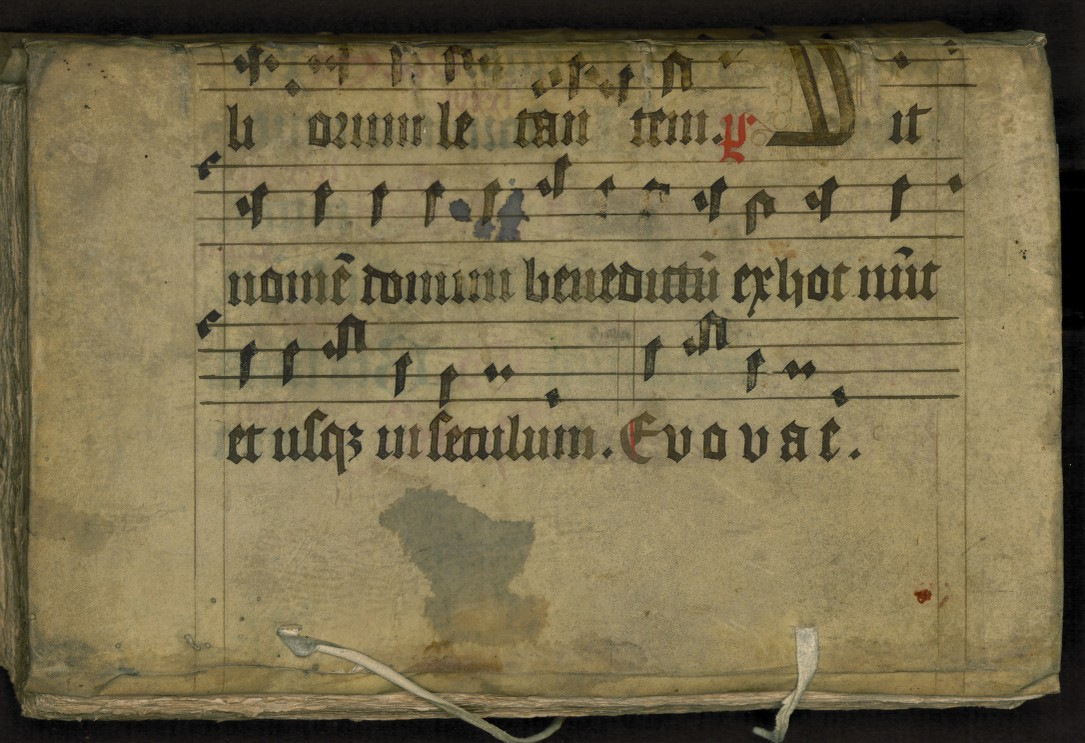 li orum le tan tem. ps Sit
nomē domini benedictū ex hoc nūc
et usqꝫ in seculum. Evovae.